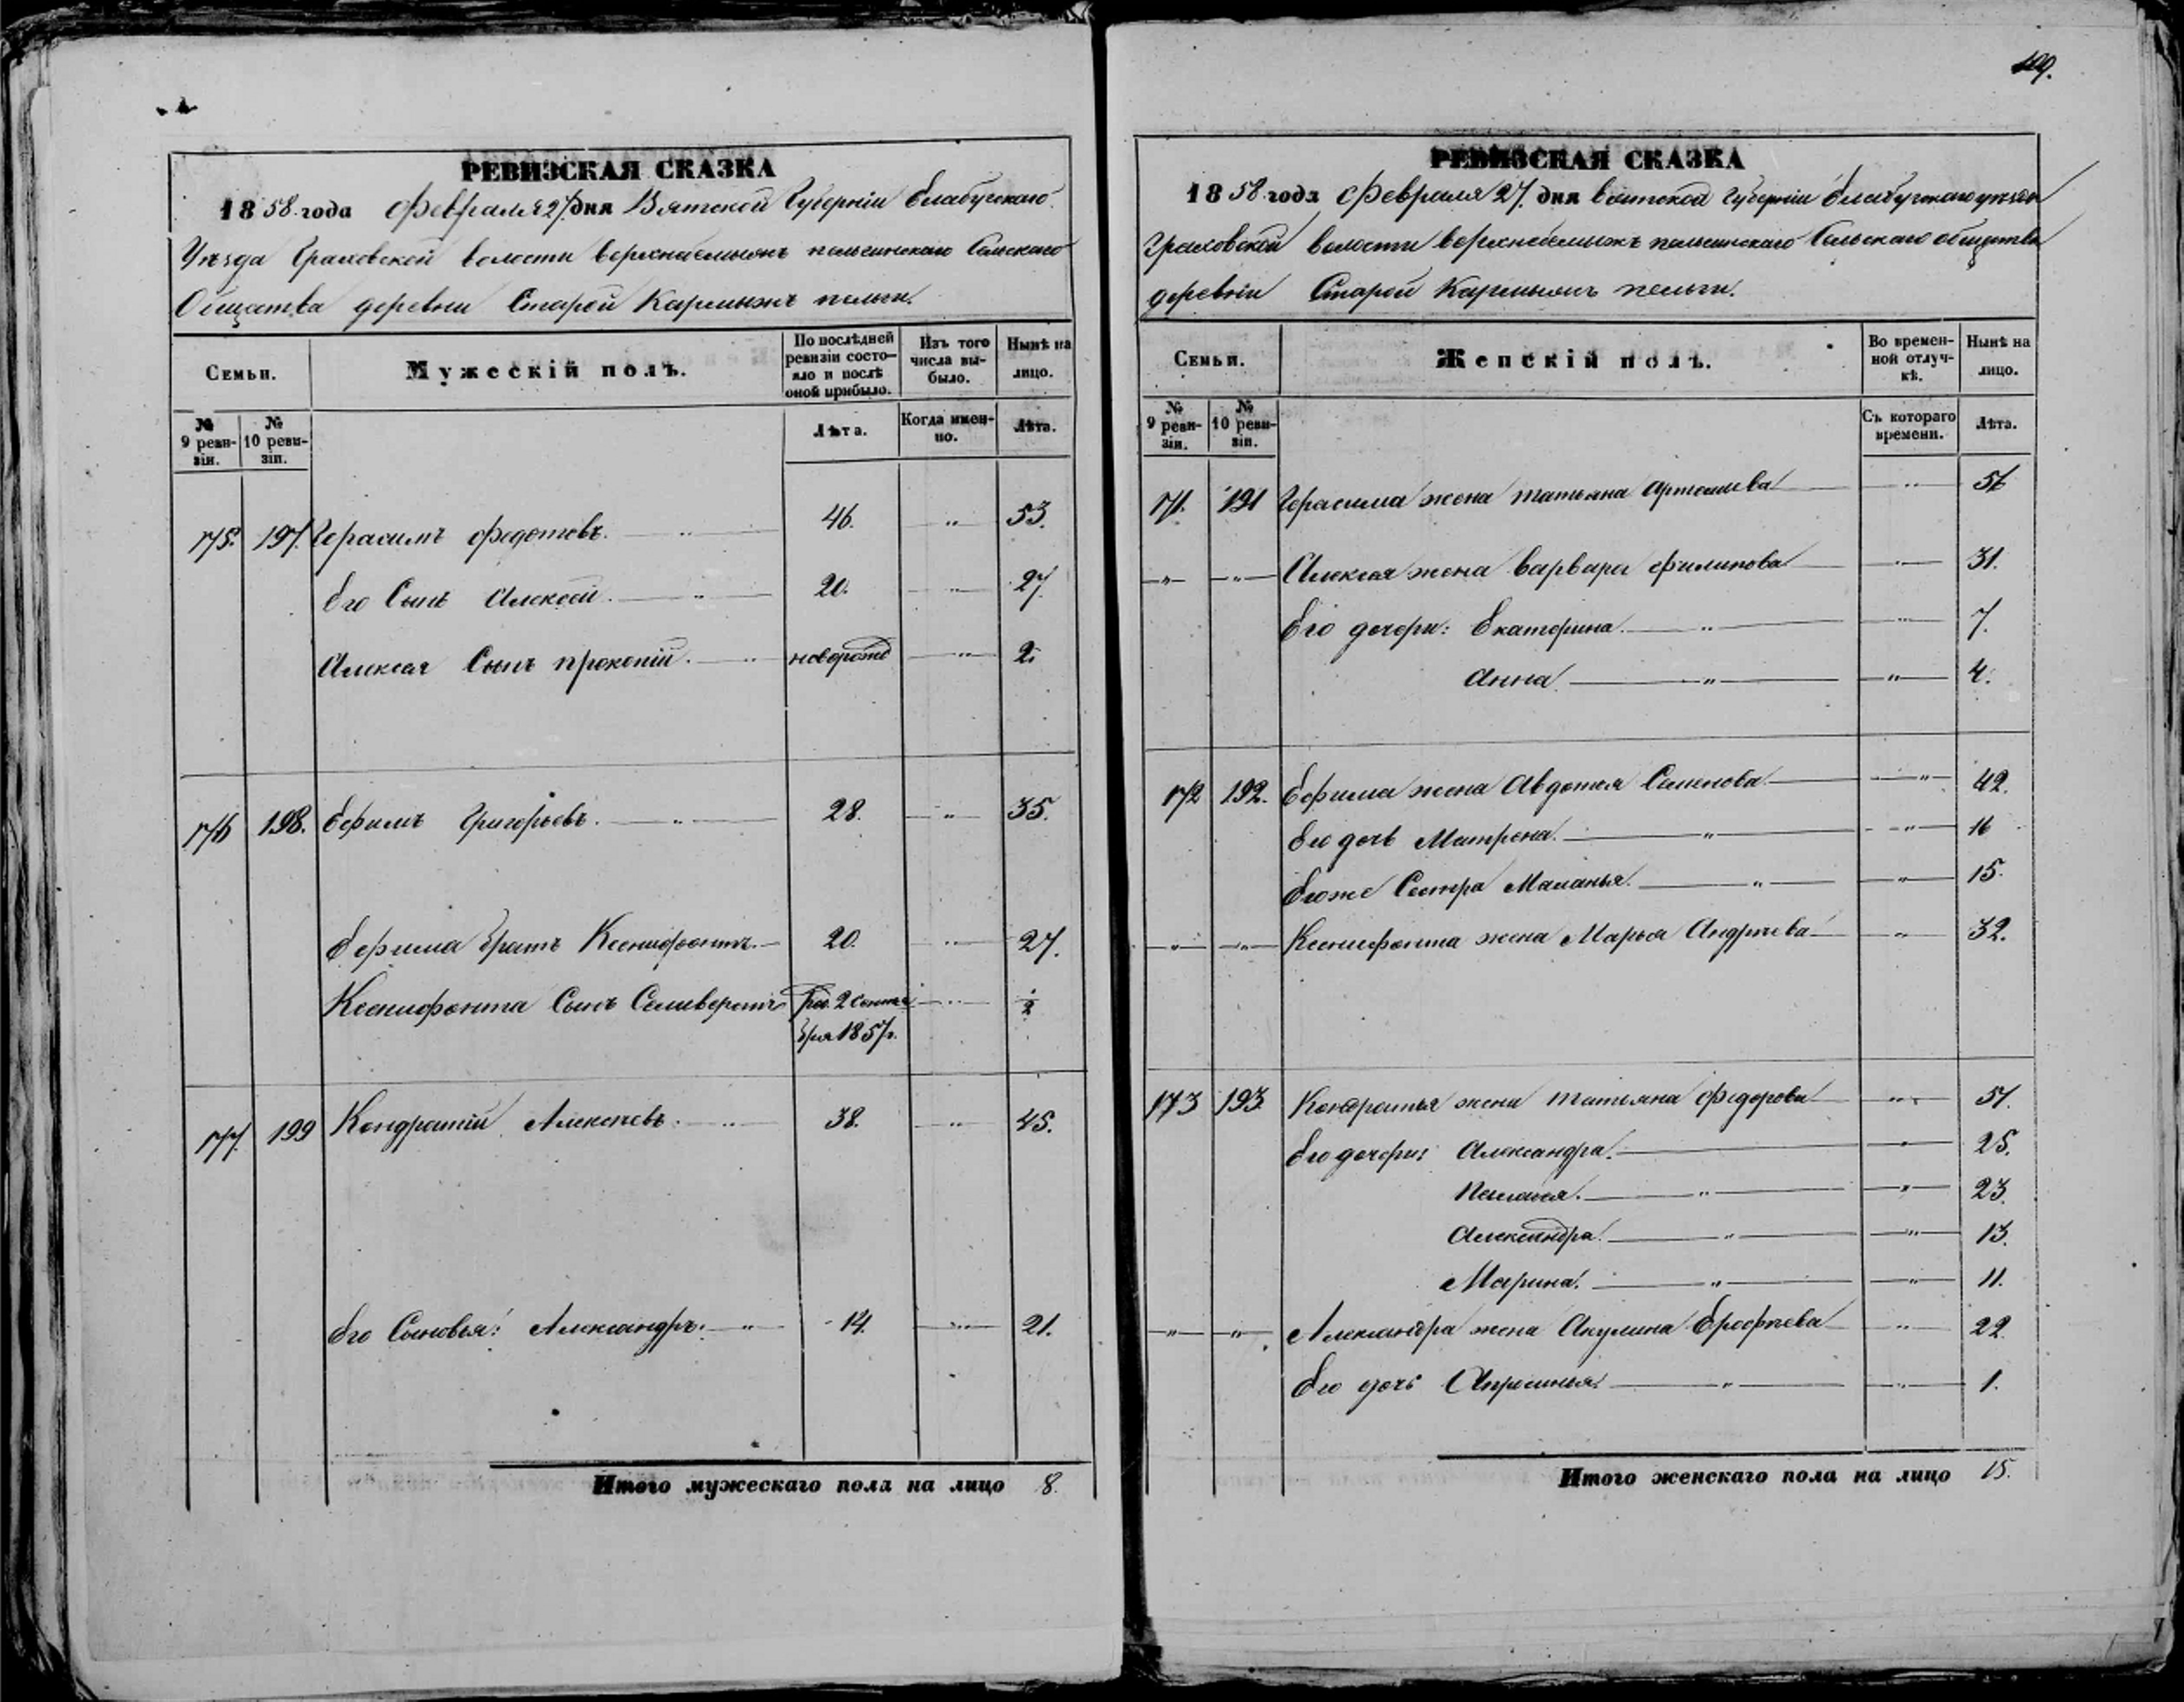 РЕВИЗСКАЯ СКАЗКА
1858 года февраля 27 дня Вятской Губерніи Елабугскаго
Уѣзда Граховской волости верхнаемыжъ пельгинскаго Сельскаго
Общества деревни Старой Кармыжъ пельги.
Семьи.
Мужескій полъ.
По послѣдней ревизіи состояло и послѣ оной прибыло.
Изъ того числа выбыло.
Нынѣ на лицо.
№ 9 ревизіи.
№ 10 ревизіи.
Лѣта.
Когда именно.
Лѣта.
175. 197. Герасимъ федотовъ. 46. 53.
Его Сынъ Алексѣй. 20. 27.
Алексея Сынъ прокопій. новорожд 2.
176 198. Ефимъ Григорьевъ. 28. 35.
Ефима братъ Ксенифонтъ. 20. 27.
Ксенифонта Сынъ Селиверстъ ро. 2 сентя ½
бря 1857 г.
177. 199 Кондратій Алексѣевъ. 38. 45.
Его Сыновья: Александръ. 14. 21.
Итого мужескаго пола на лицо 8.
199.
РЕВИЗСКАЯ СКАЗКА
1858 года февраля 27. дня вятской губерніи Елабугскаго уѣзда
Граховской волости верхнаемыжъ пельгинскаго Сельскаго общества
деревни Старой Кармыжъ пельги.
Семьи.
Женскій полъ.
Во временной отлучкѣ.
Нынѣ на лицо.
№ 9 ревизіи.
№ 10 ревизіи.
Съ котораго времени.
Лѣта.
171. 191 Герасима жена татьяна Артемьева 56
Алексея жена варвара филипова 31.
Его дочери: Екатерина. 7.
Анна. 4.
172 192. Ефима жена Авдотья Семенова 42.
Его дочь Матрена. 16
Его же Сестра Маланья. 15.
Ксенифонта жена Марья Андрѣева 32.
173 193. Кондратья жена татьяна федорова 51.
Его дочери: Александра. 25.
Пелагея. 23.
Александра. 13.
Марина. 11.
Александра жена Акулина Ерофѣева 22.
Его дочь Апросинья. 1.
Итого женскаго пола на лицо 15.